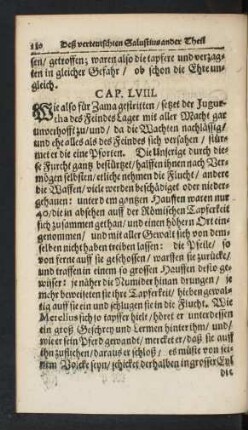 180 Deß verteutschten Salustius ander Theil
sen / getroffen; waren also die tapfere und verzag-
ten in gleicher Gefahr / ob schon die Ehre un-
gleich.
CAP. LVIII.
Wie also für Zama gestritten / setzet der Jugur-
tha des Feindes Lager mit aller Macht gar
unverhofft zu / und / da die Wachten nachlässig /
und ehe alles als des Feindes sich versahen / stür-
met er die eine Pforten. Die Unserige durch die-
se Furcht gantz bestürtzt / halffen ihnen nach Ver-
mögen selbsten / etliche nehmen die Flucht / andere
die Waffen / viele werden beschädiget oder nieder-
gehauen: unter dem gantzen Hauffen waren nur
40 / die in absehen auff der Römischen Tapferkeit
sich zusammen gethan / und einen höhern Ort ein-
genommen / und mit aller Gewalt sich von dem-
selben nicht haben treiben lassen: die Pfeile / so
von ferne auff sie geschossen / warffen sie zurücke /
und traffen in einem so grossen Hauffen desto ge-
wisser: je näher die Numider hinan drungen / je
mehr beweiseten sie ihre Tapferkeit / hieben gewal-
tig auff sie ein und schlugen sie in die Flucht. Wie
Metellus sich so tapffer hielt / höret er unterdessen
ein groß Geschrey und Lermen hinter ihm / und /
wie er sein Pferd gewandt / mercket er / daß sie auff
ihn zuflichen / daraus er schloß / es müste von sei-
nem Volcke seyn / schicket derhalben in grosser Eyl
die